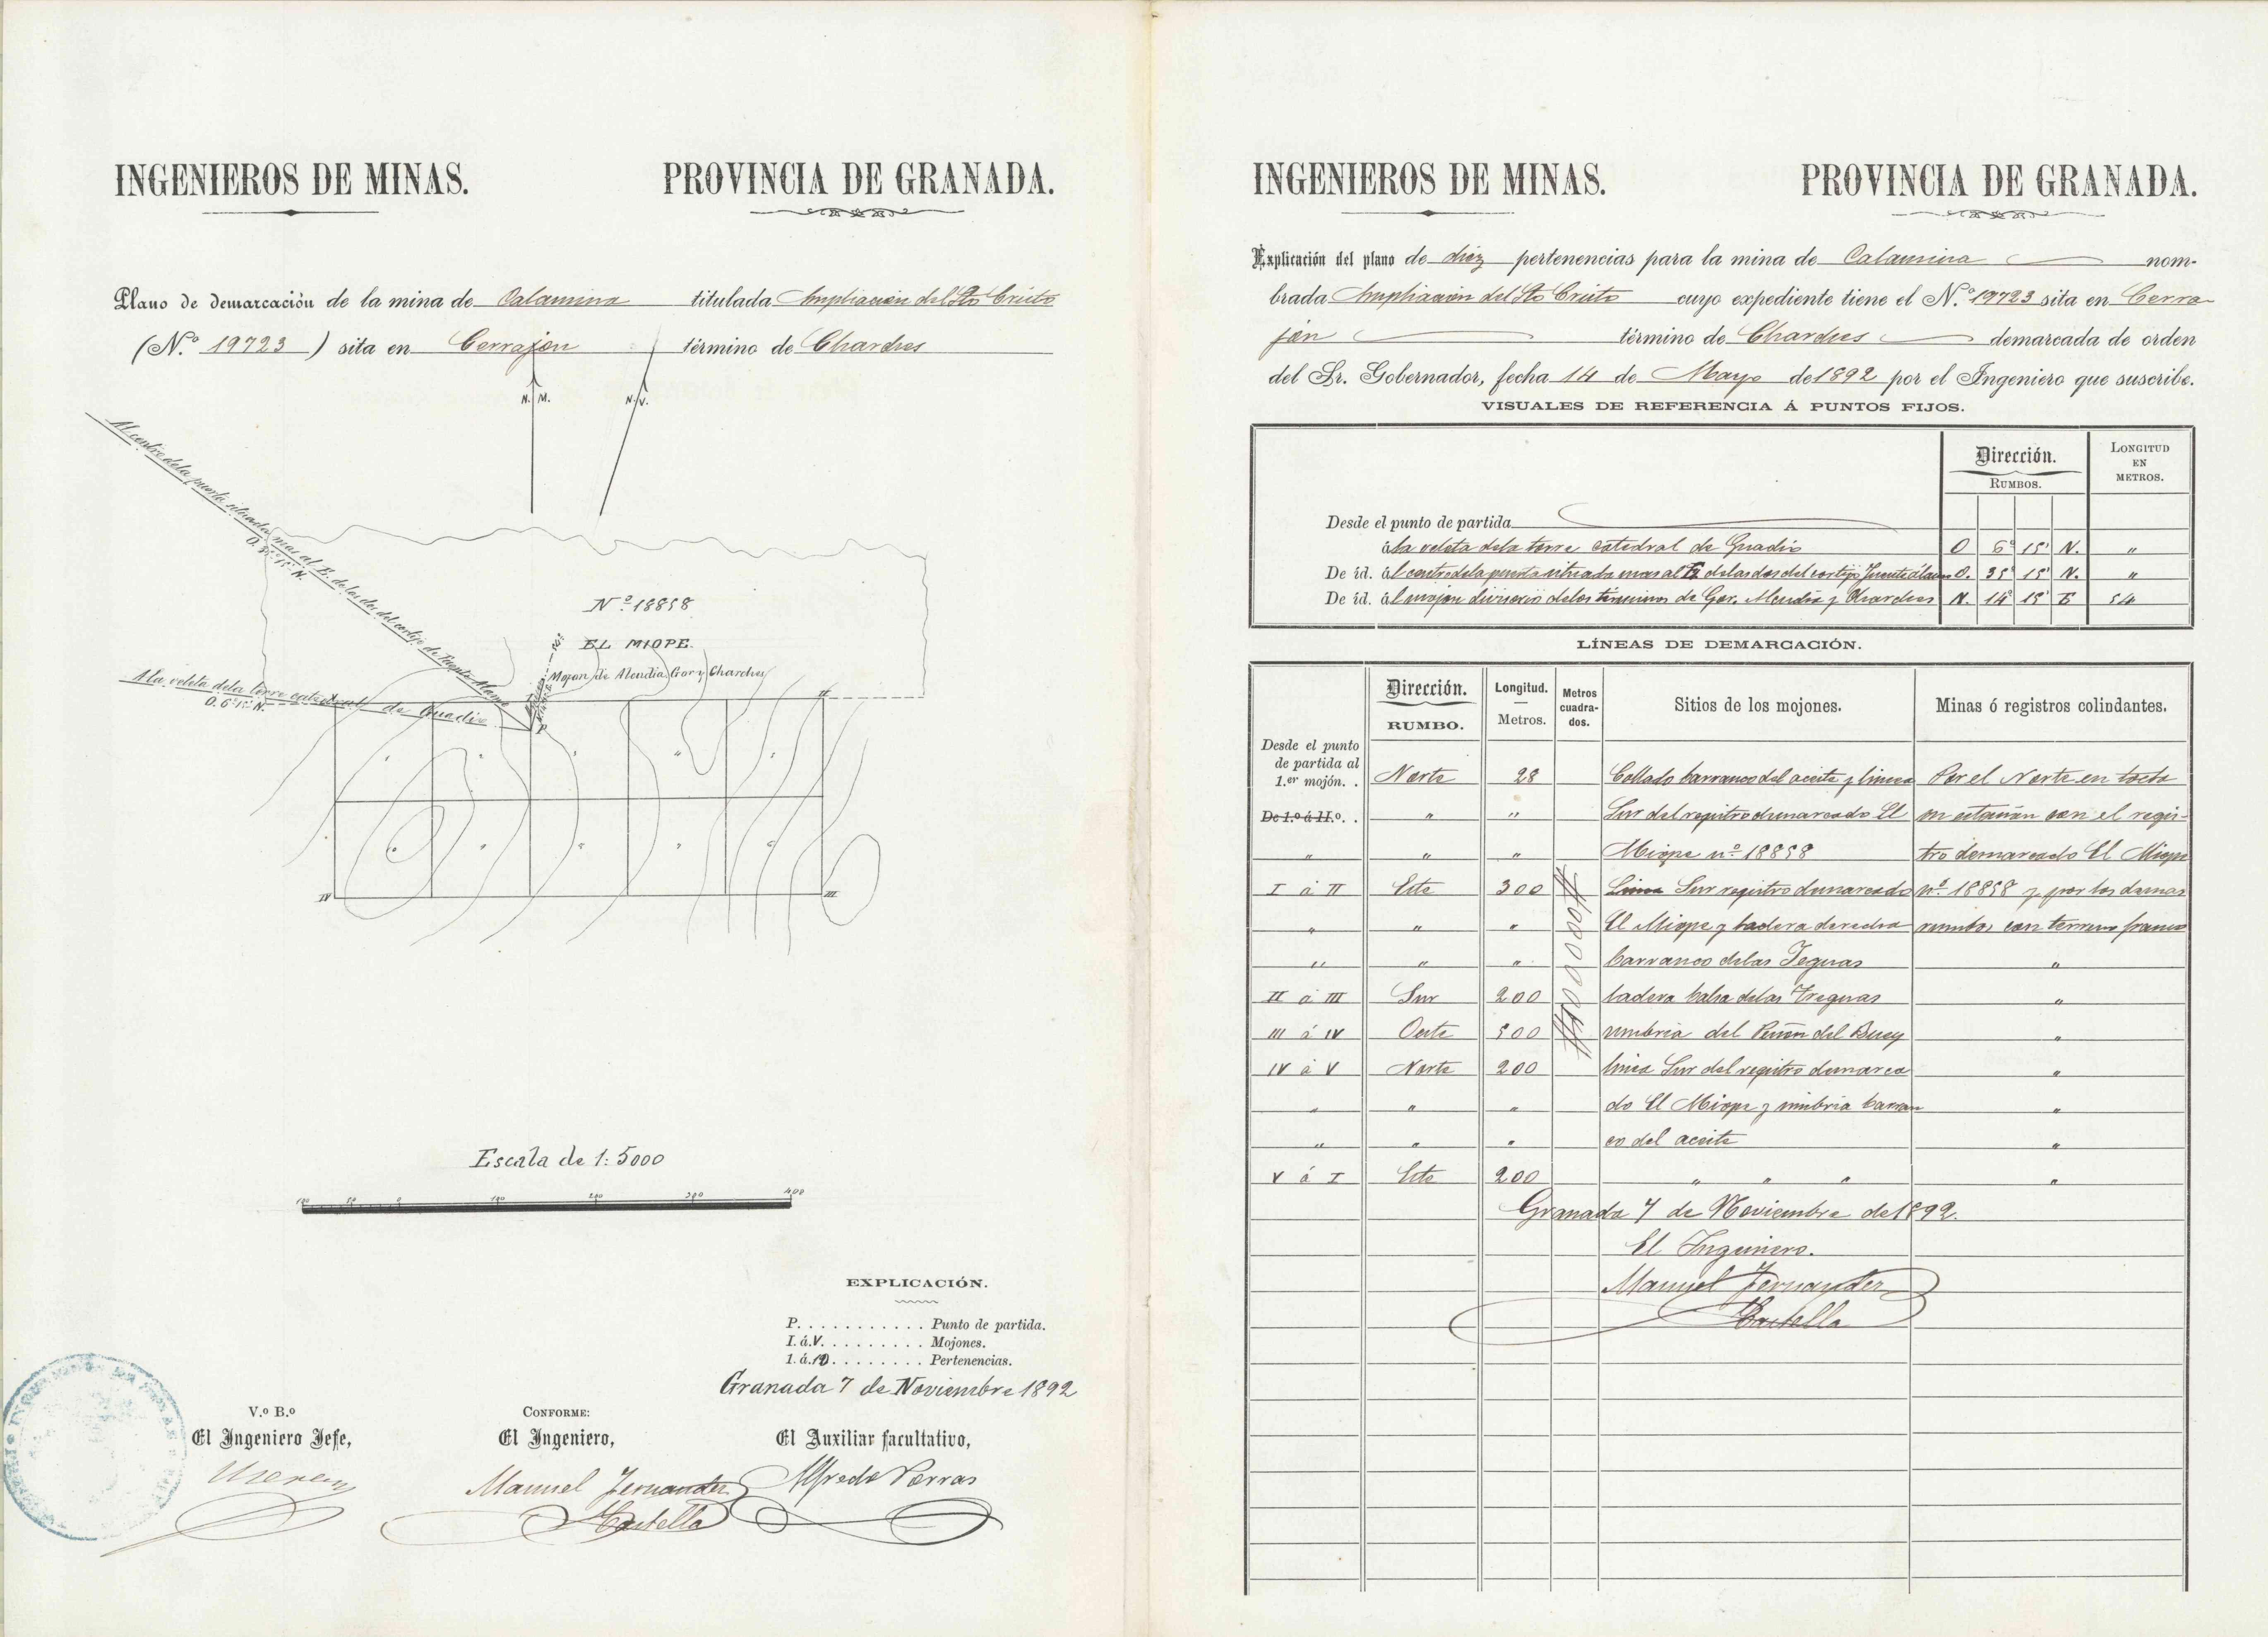 INGENIEROS DE MINAS. PROVINCIA DE GRANADA.
Plano de demarcación de la mina de Calamina titulada Ampliación del Sto Cristo
(N.º 19723) sita en Cerrajon término de Charches
N. M. N. V.
Al centro dela puerta situada mas al E. de las dos del cortijo de Fuente Alamo
O. 35º 15' N.
Nº 18858
EL MIOPE.
Mojon de Alcudia, Gor y Charches
A la veleta dela torre catedral de Guadix
O. 6º 15' N.
I II
P
IV III
Escala de 1: 5000
100 50 0 100 200 300 400
EXPLICACIÓN.
P. . . . . . . . . . . . Punto de partida.
I. á.V. . . . . . . . . . Mojones.
1. á.10. . . . . . . . . Pertenencias.
Granada 7 de Noviembre 1892
V.º B.º CONFORME:
El Ingeniero Jefe, El Ingeniero, El Auxiliar facultativo,
Manuel Fernandez Alfredo Porras
Castella
INGENIEROS DE MINAS. PROVINCIA DE GRANADA.
Explicación del plano de diez pertenencias para la mina de Calamina nom-
brada Ampliación del Sto Cristo cuyo expediente tiene el N.º 19723 sita en Cerra-
jón término de Charches demarcada de orden
del Sr. Gobernador, fecha 14 de Mayo de 1892 por el Ingeniero que suscribe.
VISUALES DE REFERENCIA Á PUNTOS FIJOS.
Dirección. LONGITUD EN METROS.
RUMBOS.
Desde el punto de partida
á la veleta dela torre catedral de Guadix O 6º 15' N. "
De id. al centro dela puerta situada mas al E delas dos del cortijo Fuente álamo O. 35º 15' N. "
De id. al mojon divisorio delos terminos de Gor, Alcudia y Charches N. 14º 15' E 54
LÍNEAS DE DEMARCACIÓN.
Dirección. RUMBO. Longitud. — Metros. Metros cuadra-dos. Sitios de los mojones. Minas ó registros colindantes.
Desde el punto
de partida al
1.er mojón. . Norte 28 Collado barranco del aceite y linea Por el Norte en toda
De 1.º á II.º. . " " Sur del registro demarcado El su estación con el regis-
" " " Miope nº 18858 tro demarcado El Miope
I á II Este 300 Linea Sur registro demarcado nº 18858 y por los demas
" " " El Miope y ladera derecha rumbos con terreno franco
" " " barranco delas Yeguas "
II á III Sur 200 ladera balsa delas Yreguas "
III á IV Oeste 500 umbria del Peñon del Buey "
IV á V Norte 200 linea Sur del registro demarca "
" " " do El Miope y umbria barran "
" " " co del aceite "
V á I Este 200 " " " "
#100000#
Granada 7 de Noviembre de 1892.
El Ingeniero.
Manuel Fernandez
Castella